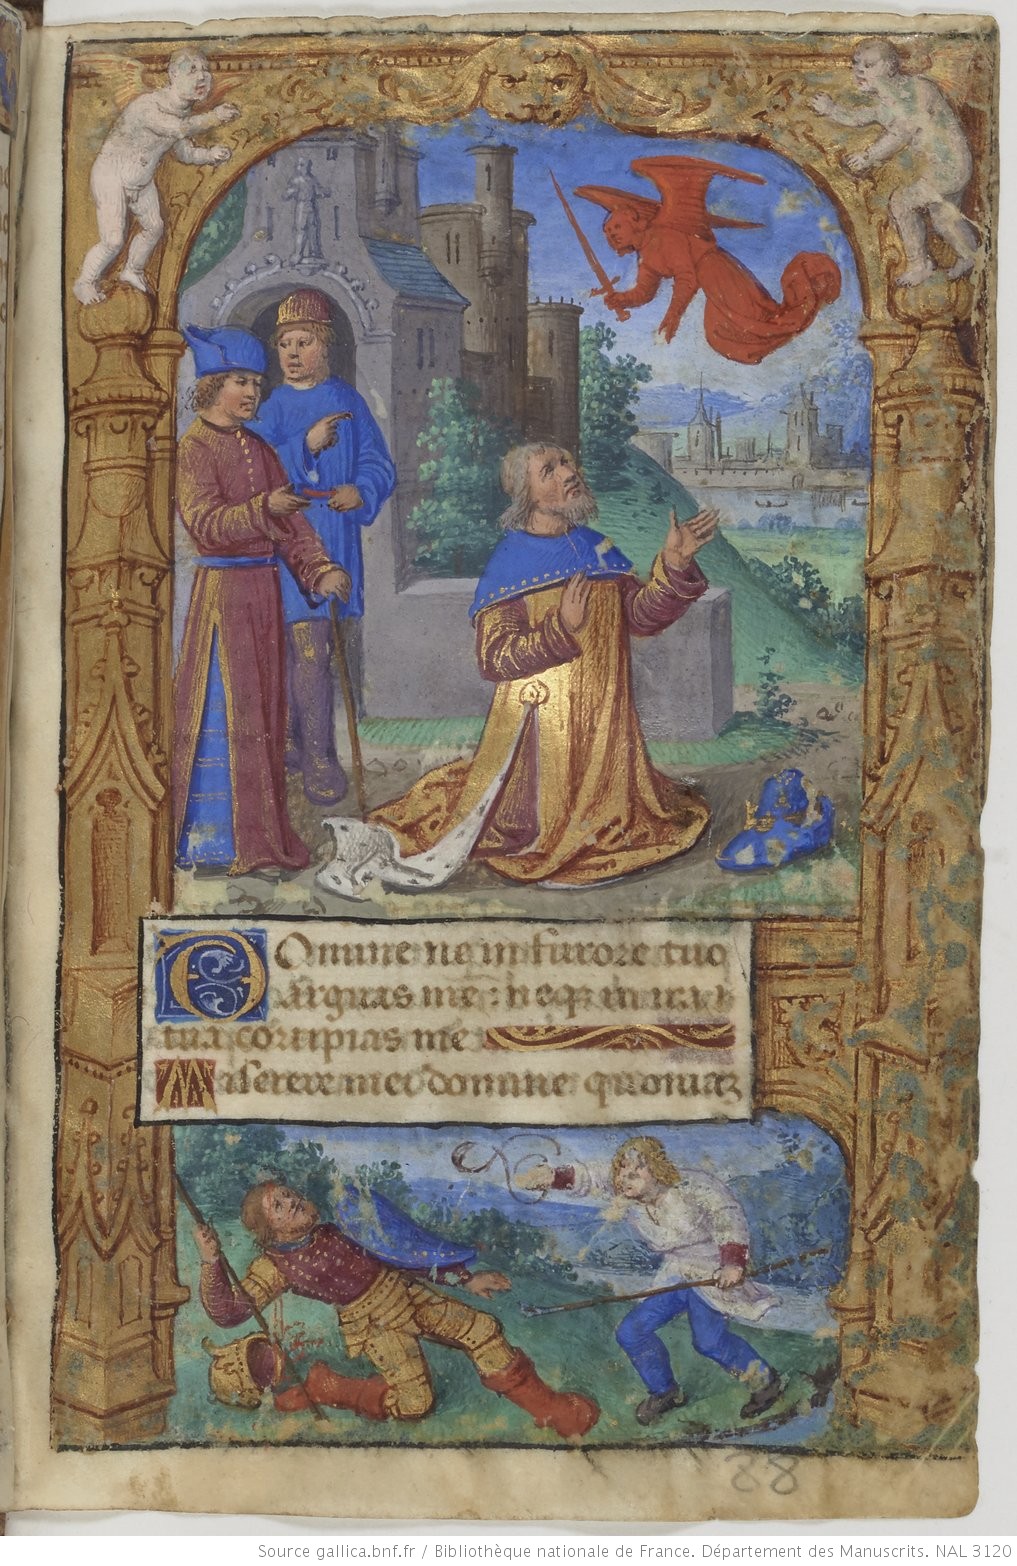 Domine ne in furore tuo
arguas me: neqʒ in ira
tua corripias me
Miserere mei domine quoniaʒ
88
Source gallica.bnf.fr / Bibliothèque nationale de France. Département des Manuscrits. NAL 3120